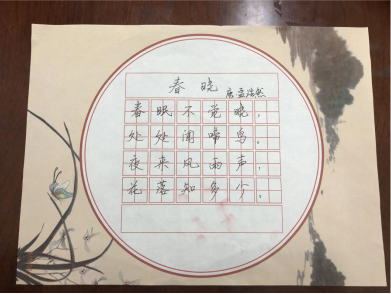 春晓
唐 孟浩然
春眠不觉晓，
处处闻啼鸟。
夜来风雨声，
花落知多少。